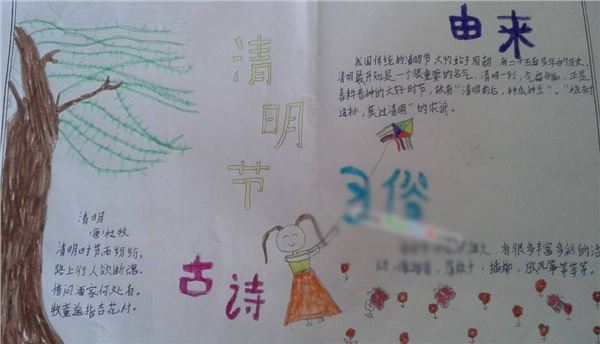 清明节
由来
我国传统的清明节大约始于周朝,有二千五百多年的历史,
清明最开始是一个很重要的节气,清明一到,气温升高,正是
春耕春种的大好时节,故有"清明前后,种瓜种豆"。"植树
造林,莫过清明"的农谚。
习俗
有很多丰富多彩的活
动,荡秋千,插柳,放风筝等等等。
古诗
清明
唐·杜牧
清明时节雨纷纷,
路上行人欲断魂。
借问酒家何处有,
牧童遥指杏花村。